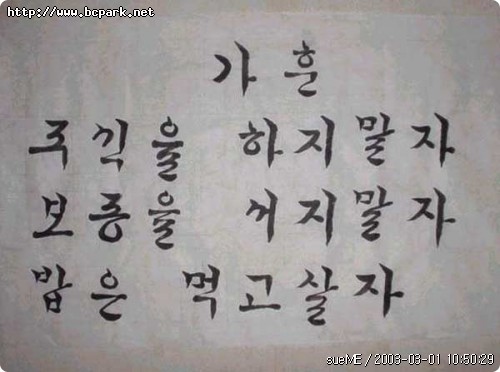 http://www.bcpark.net
가훈
주식을 하지말자
보증을 서지말자
밥은 먹고살자
sueME / 2003-03-01 10:50:29